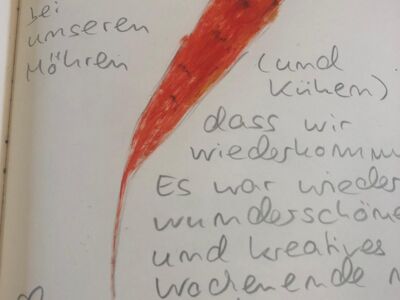 bei
unseren
Möhren
(und
Kühen)
dass wir
wiederkomm
Es war wieder
wunderschöne
und kreatives
Wochenende